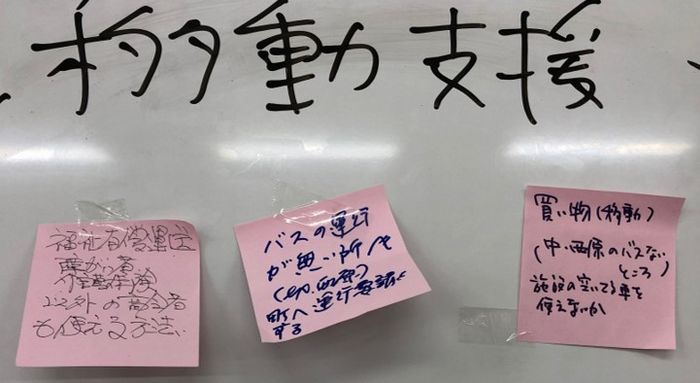 移動支援
福祉有償運送
障がい者
介護保険
以外の高齢者
も使える方法
バスの運行
が無い所を
(中、西原)
町へ運行要請
する
買い物(移動)
(中・西原のバスない
ところ)
施設の空いてる車を
使えないか